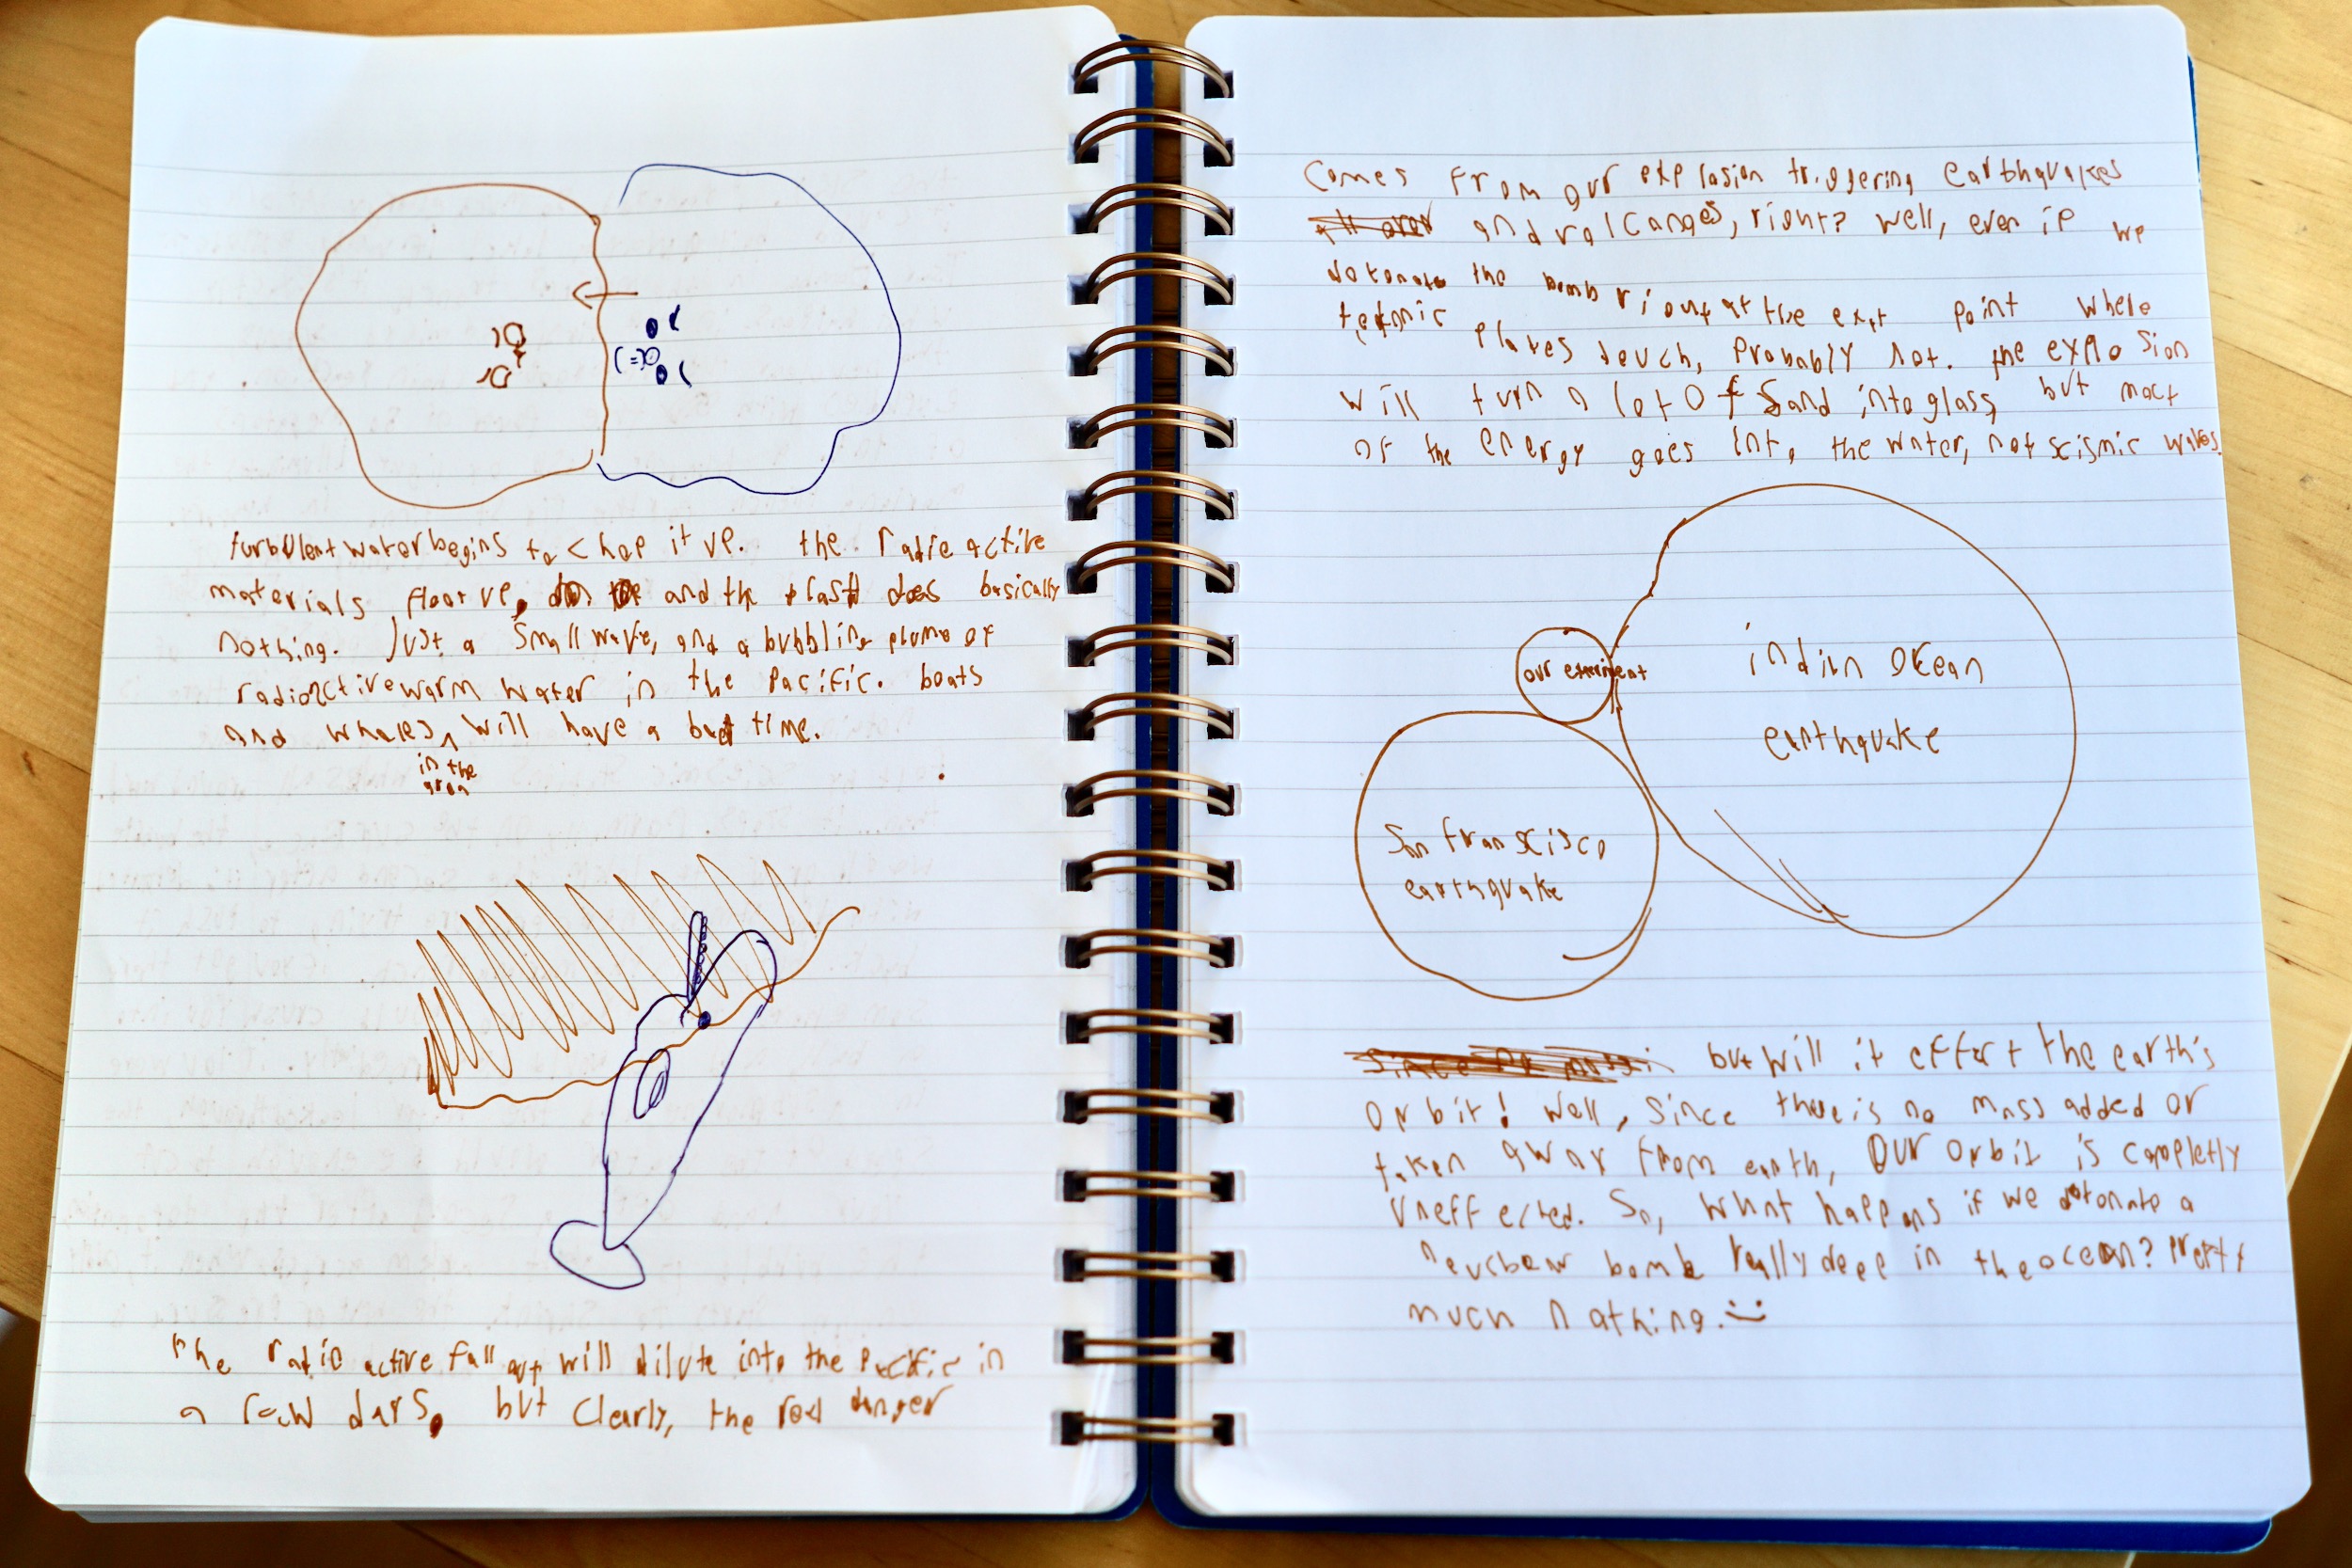 turbulent water begins to chop it up. the radio active
materials float up, and the blast does basically
nothing. Just a small wave, and a bubbling plume of
radioactive warm water in the pacific. boats
and whales will have a bad time.
in the
area
the radio active fall out will dilute into the pacific in
a few days, but clearly, the real danger
comes from our explosion triggering earthquakes
and volcanoes, right? well, even if we
detonate the bomb right at the exit point where
tectonic plates touch, probably not. the explosion
will turn a lot of sand into glass, but most
of the energy goes into the water, not seismic waves.
our experiment
indian okean
earthquake
San franscisco
earthquake
but will it effect the earth's
orbit! Well, since there is no mass added or
taken away from earth, our orbit is completly
uneffected. So, what happens if we detonate a
bomb really deep in the ocean? pretty
much nothing. :)